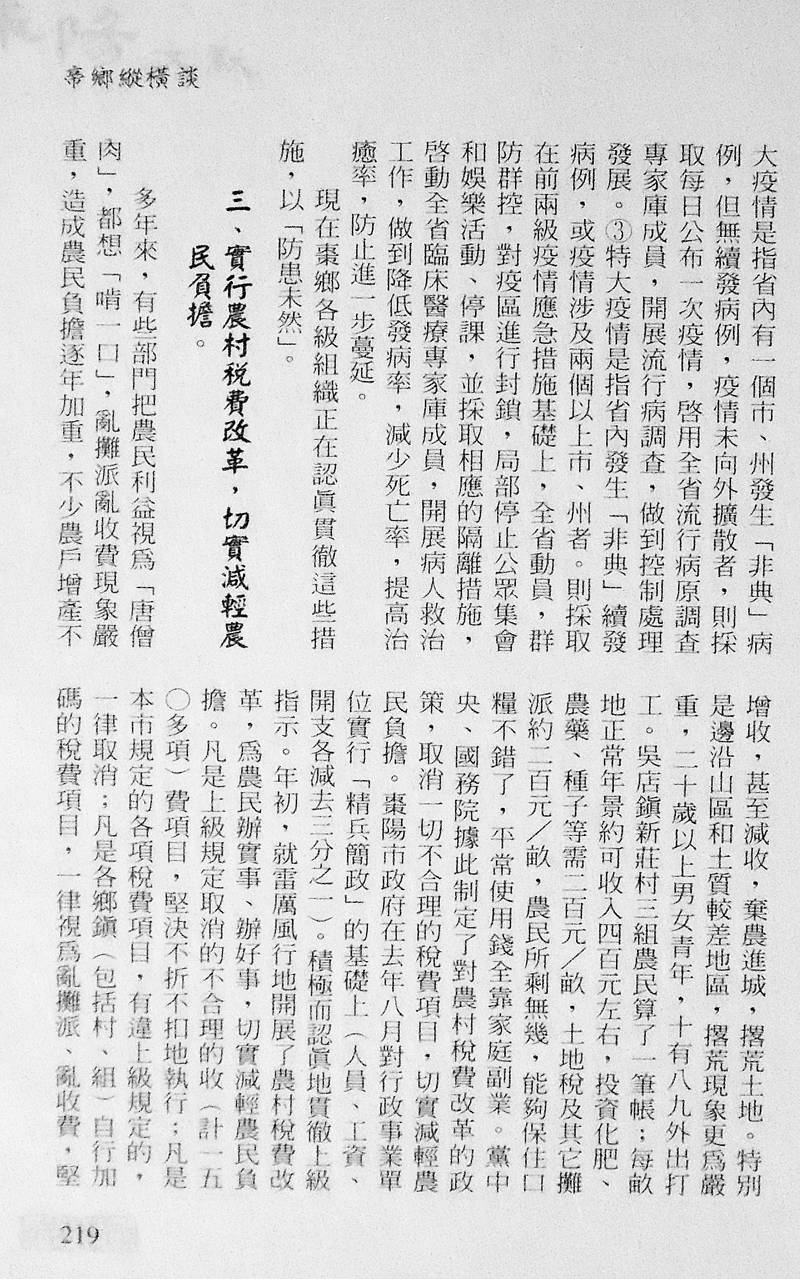 帝鄉縱橫談
大疫情是指省內有一個市、州發生「非典」病
例，但無續發病例，疫情未向外擴散者，則採
取每日公布一次疫情，啓用全省流行病原調查
專家庫成員，開展流行病調查，做到控制處理
發展。③特大疫情是指省內發生「非典」續發
病例，或疫情涉及兩個以上市、州者。則採取
在前兩級疫情應急措施基礎上，全省動員，群
防群控，對疫區進行封鎖，局部停止公眾集會
和娛樂活動、停課，並採取相應的隔離措施，
啓動全省臨床醫療專家庫成員，開展病人救治
工作，做到降低發病率，減少死亡率，提高治
癒率，防止進一步蔓延。
現在棗鄉各級組織正在認眞貫徹這些措
施，以「防患未然」。
三、實行農村稅費改革，切實減輕農
民負擔。
多年來，有些部門把農民利益視爲「唐僧
肉」，都想「啃一口」，亂攤派亂收費現象嚴
重，造成農民負擔逐年加重，不少農戶增產不
增收，甚至減收，棄農進城，撂荒土地。特別
是邊沿山區和土質較差地區，撂荒現象更爲嚴
重，二十歲以上男女青年，十有八九外出打
工。吳店鎭新莊村三組農民算了一筆帳；每畝
地正常年景約可收入四百元左右，投資化肥、
農藥、種子等需二百元／畝，土地稅及其它攤
派約二百元／畝，農民所剩無幾，能夠保住口
糧不錯了，平常使用錢全靠家庭副業。黨中
央、國務院據此制定了對農村稅費改革的政
策，取消一切不合理的稅費項目，切實減輕農
民負擔。棗陽市政府在去年八月對行政事業單
位實行「精兵簡政」的基礎上（人員、工資、
開支各減去三分之一）。積極而認眞地貫徹上級
指示。年初，就雷厲風行地開展了農村稅費改
革，爲農民辦實事、辦好事，切實減輕農民負
擔。凡是上級規定取消的不合理的收（計一五
〇多項）費項目，堅決不折不扣地執行；凡是
本市規定的各項稅費項目，有違上級規定的，
一律取消；凡是各鄉鎭（包括村、組）自行加
碼的稅費項目，一律視爲亂攤派、亂收費，堅
219